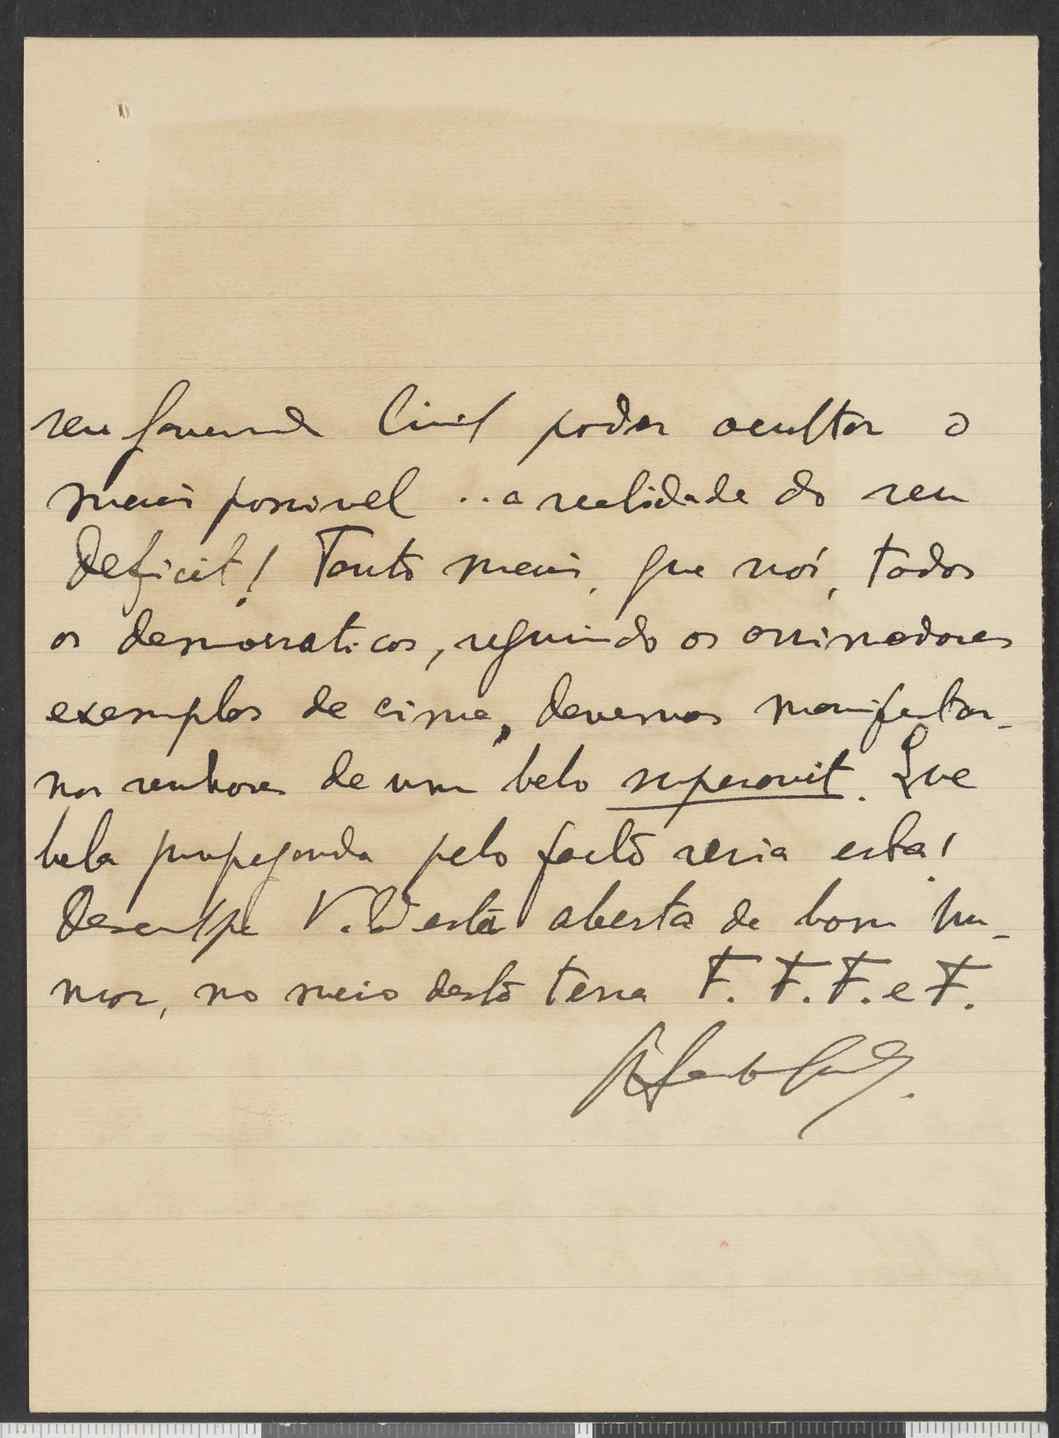 seu Governad Civil poder ocultar o
mais possivel .. a realidade do seu
Deficit! Tanto mais, que nós, todos
os democraticos, seguindo os animadores
exemplos de cima, devemos manifestar-
nos senhores de um belo superavit. Que
bela propaganda pelo facto seria esta!
Desculpe V. esta aberta de bom hu-
mor, no meio desta terra F. F. F. e F.